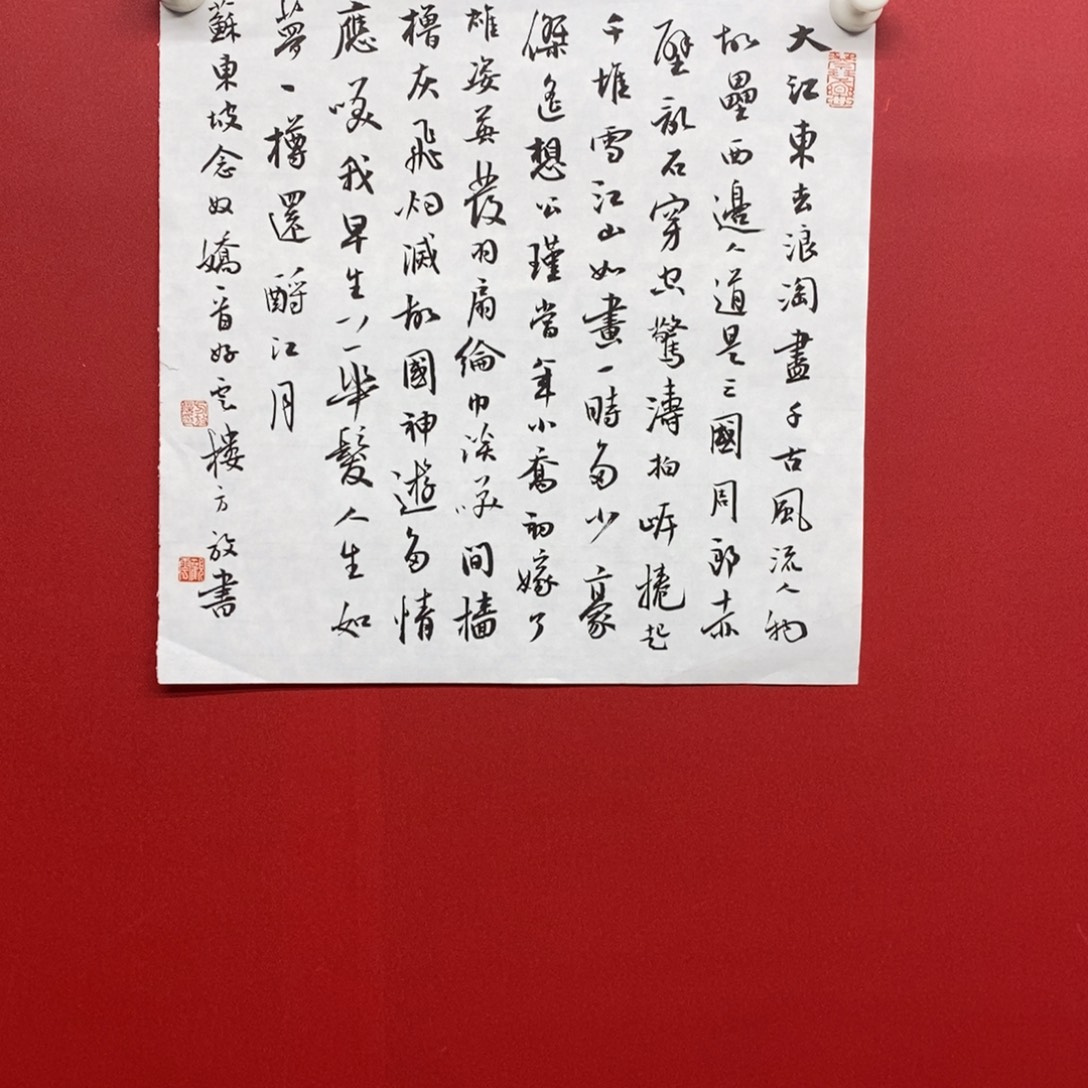 大江東去浪淘盡千古風流人物
故壘西邊人道是三國周郎赤
壁亂石穿空驚濤拍岸捲起
千堆雪江山如畫一時多少豪
傑遙想公瑾當年小喬初嫁了
雄姿英發羽扇綸巾談咲間檣
櫓灰飛烟滅故國神遊多情
應咲我早生華髮人生如
夢一樽還酹江月
蘇東坡念奴嬌一首好雲樓方放書